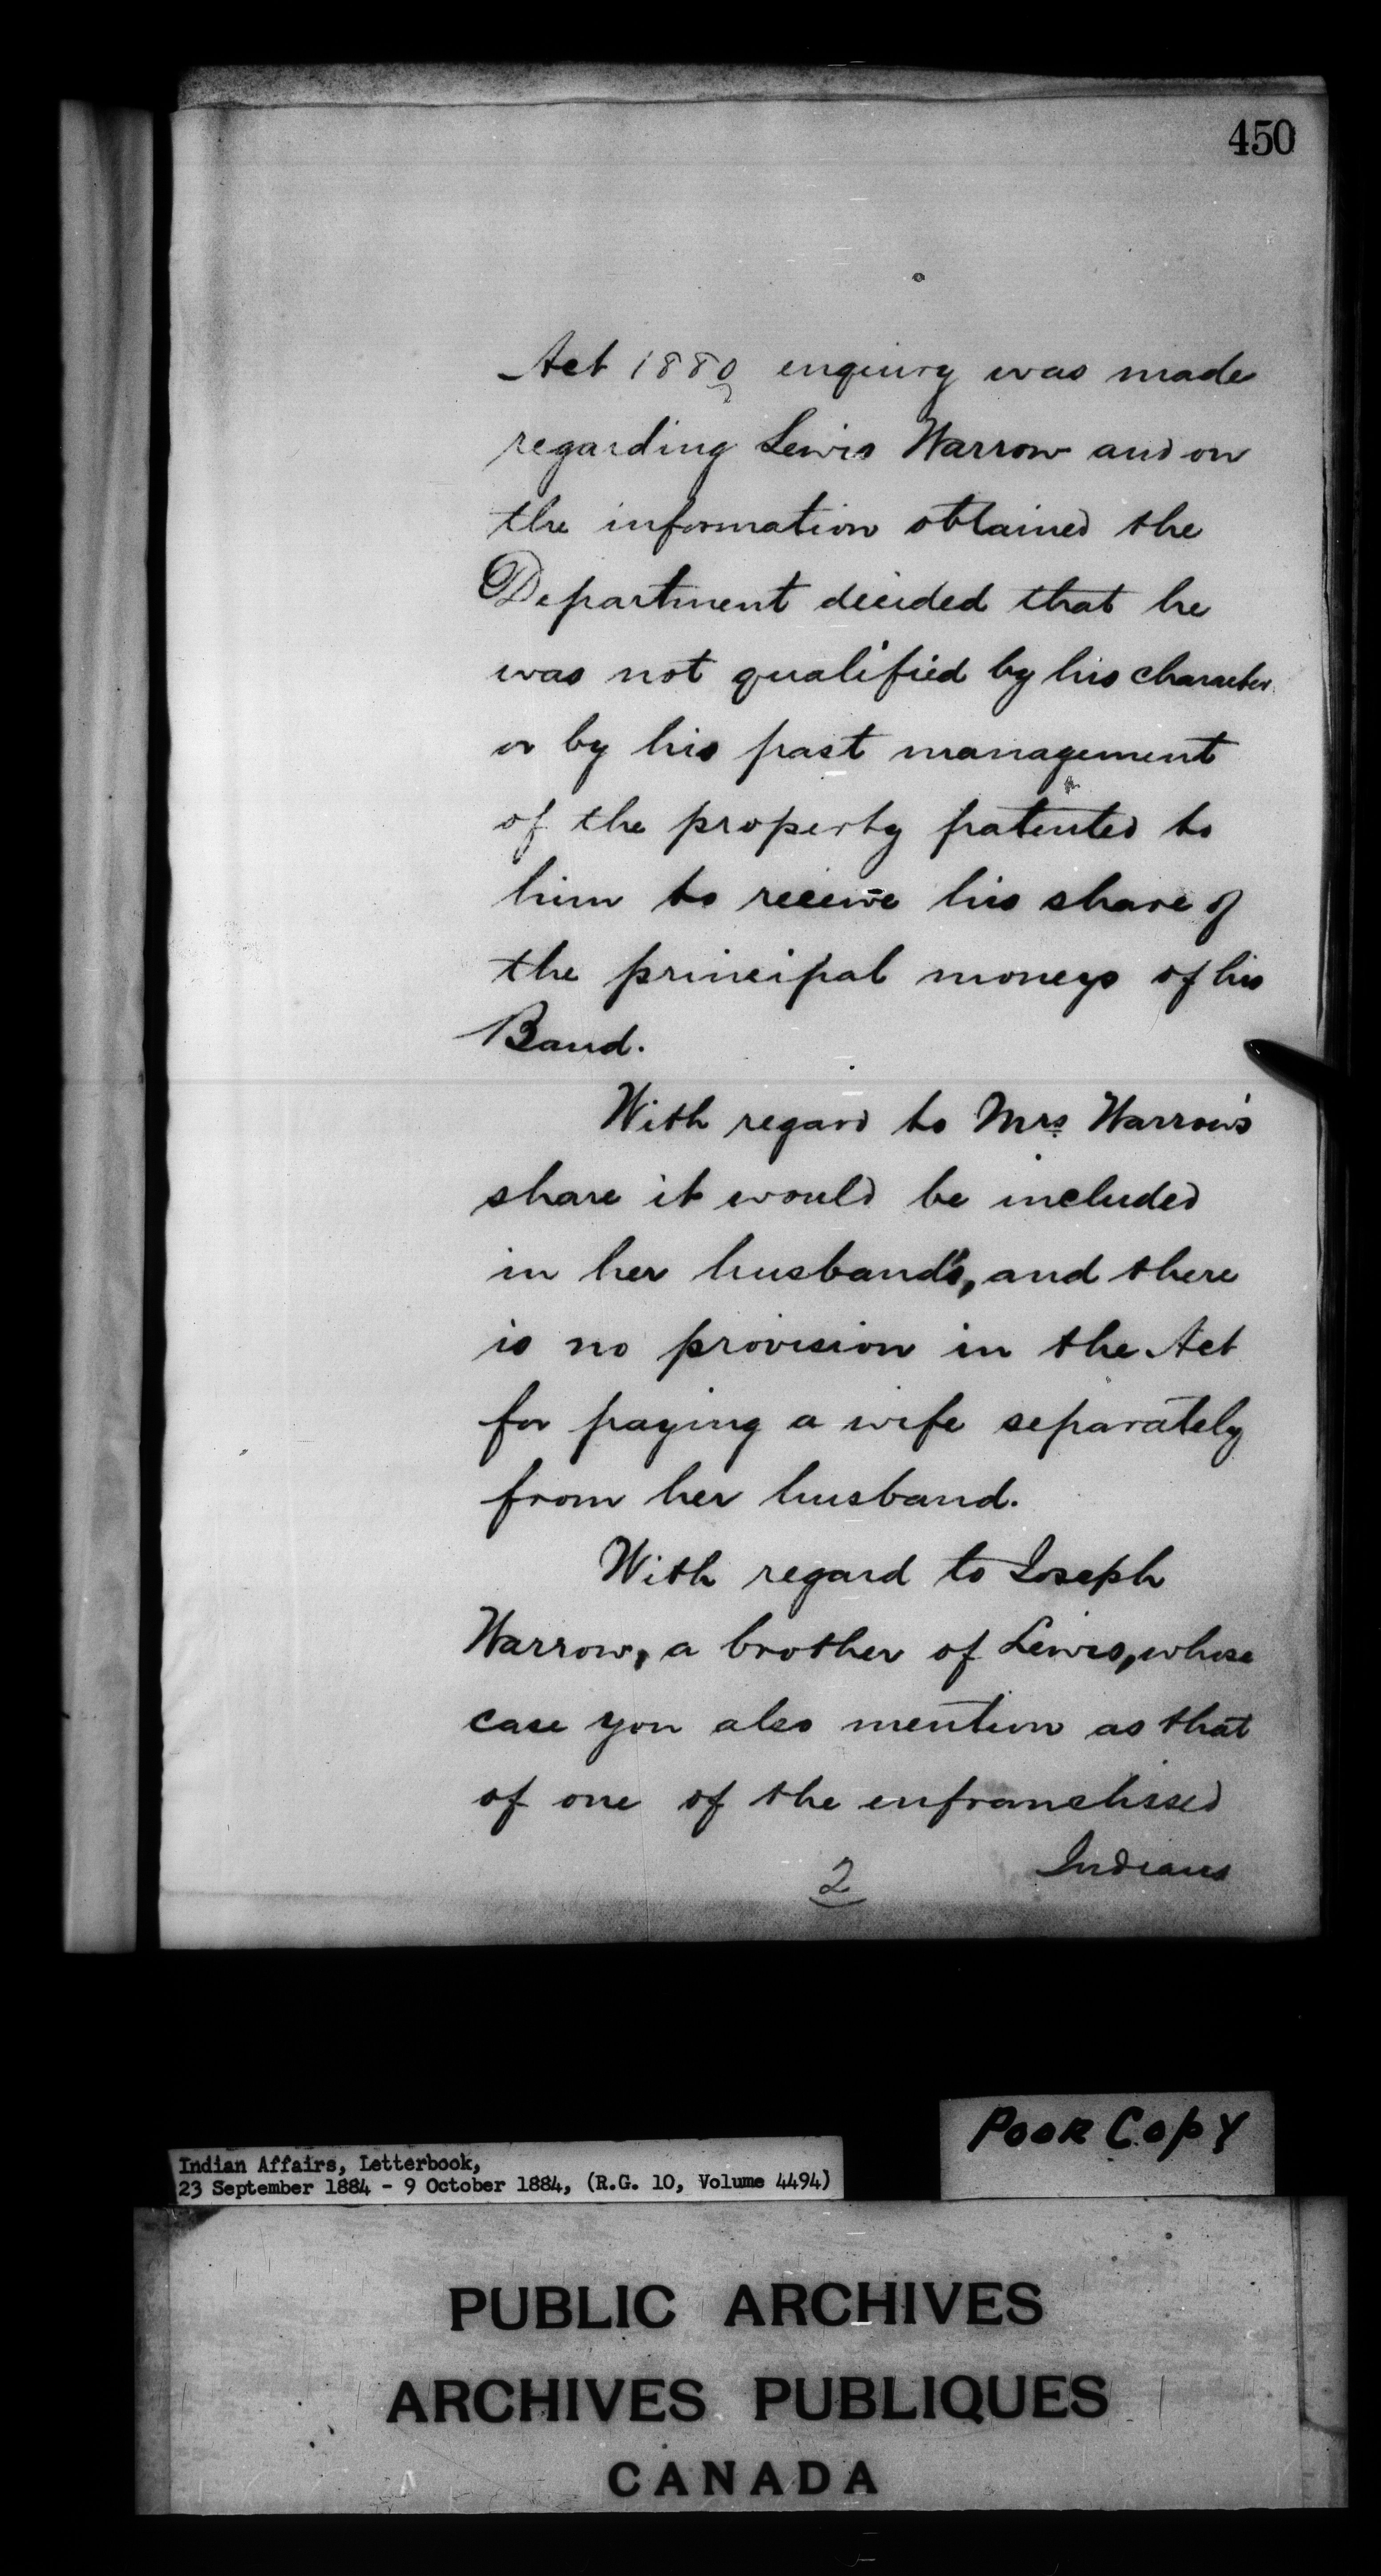 450
Act 1880, enquiry was made
regarding Lewis Warrow and on
the information obtained the
Department decided that he
was not qualified by his character
or by his past management
of the property patented to
him to receive his share of
the principal moneys of his
Band.
With regard to Mrs Warrow's
share it would be included
in her husband's, and there
is no provision in the Act
for paying a wife separately
from her husband.
With regard to Joseph
Warrow, a brother of Lewis, whose
case you also mention as that
of one of the enfranchised
2 Indians
POOR COPY
Indian Affairs, Letterbook,
23 September 1884 - 9 October 1884, (R.G. 10, Volume 4494)
PUBLIC ARCHIVES
ARCHIVES PUBLIQUES
CANADA